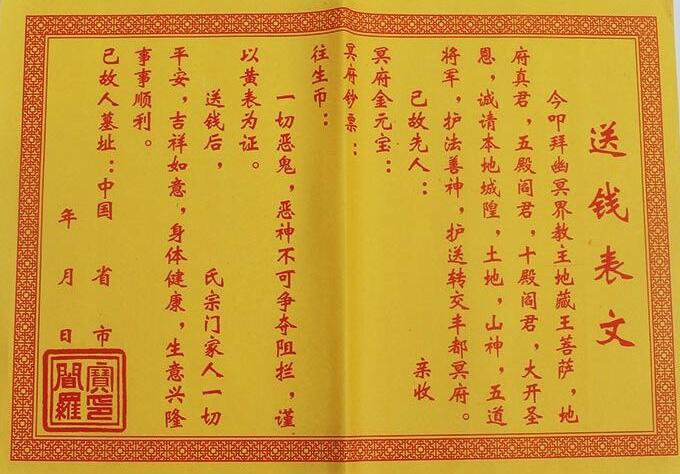 送钱表文
今叩拜幽冥界教主地藏王菩萨，地
府真君，五殿阎君，十殿阎君，大开圣
恩，诚请本地城隍，土地，山神，五道
将军，护法善神，护送转交丰都冥府。
已故先人： 亲收
冥府金元宝：
冥府钞票：
往生币：
一切恶鬼，恶神不可争夺阻拦，谨
以黄表为证。
送钱后， 氏宗门家人一切
平安，吉祥如意，身体健康，生意兴隆
事事顺利。
已故人墓址：中国 省 市
年 月 日
阎罗宝印